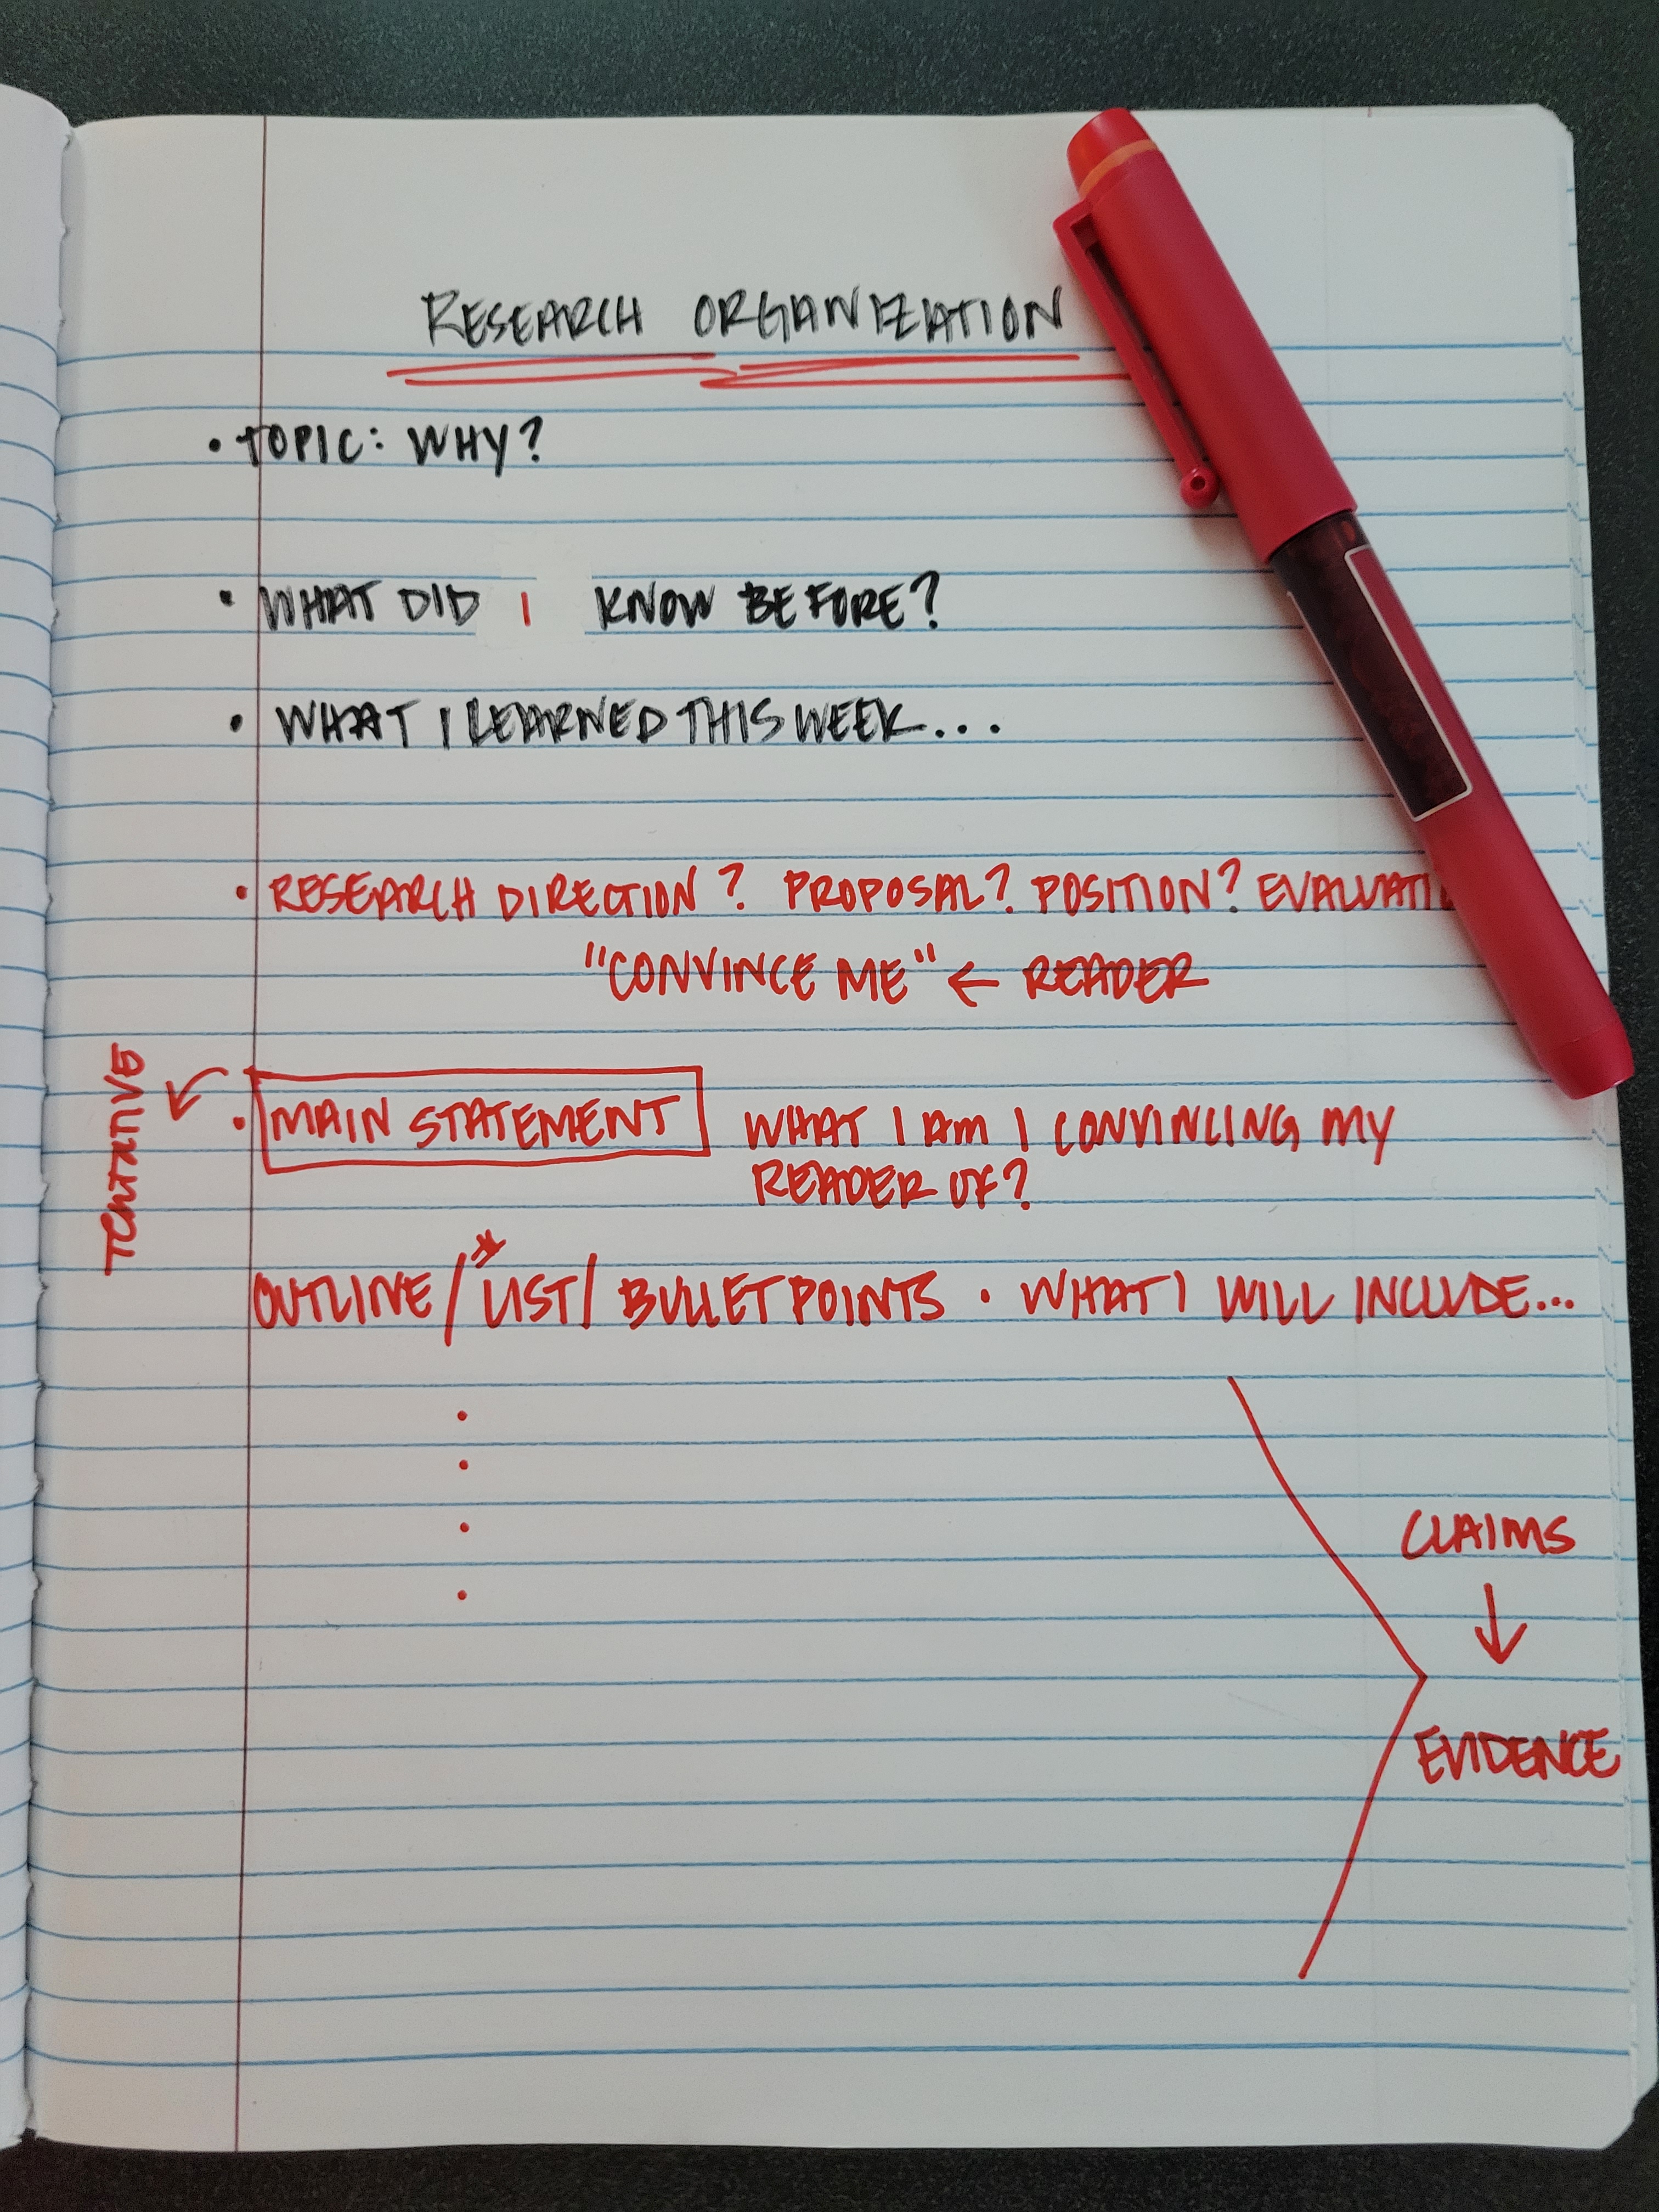 RESEARCH ORGANIZATION
• TOPIC: WHY?
• WHAT DID I KNOW BEFORE?
• WHAT I LEARNED THIS WEEK...
• RESEARCH DIRECTION? PROPOSAL? POSITION? EVALUATI
"CONVINCE ME" ← READER
TENTATIVE
• MAIN STATEMENT WHAT I AM I CONVINCING MY
READER OF?
OUTLINE / *LIST / BULLET POINTS • WHAT I WILL INCLUDE...
•
•
•
•
CLAIMS
↓
EVIDENCE